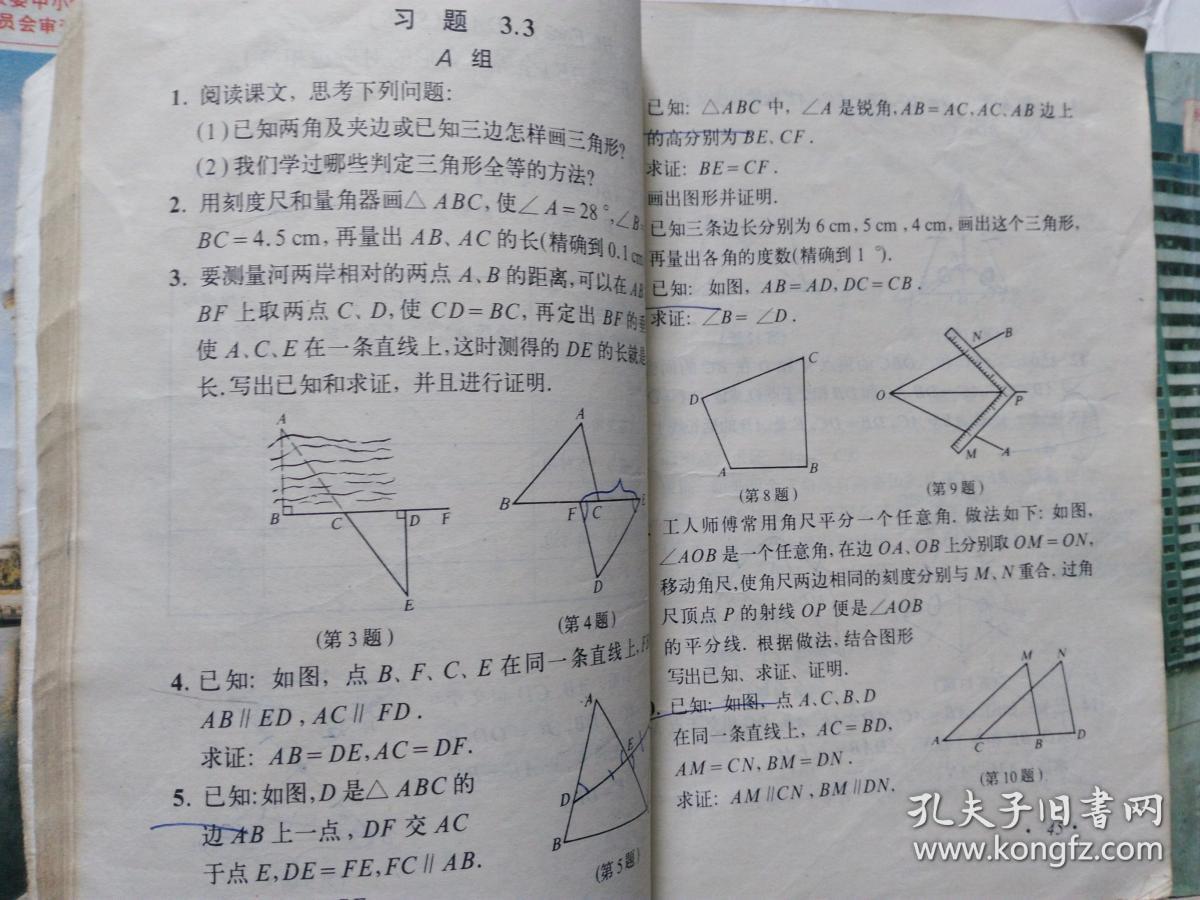 员会审
习 题 3.3
A 组
1. 阅读课文，思考下列问题:
(1)已知两角及夹边或已知三边怎样画三角形?
(2)我们学过哪些判定三角形全等的方法?
2. 用刻度尺和量角器画△ABC,使∠A=28°,∠B=
BC=4.5 cm,再量出 AB、AC 的长(精确到0.1 cm
3. 要测量河两岸相对的两点 A、B 的距离,可以在 AB
BF 上取两点 C、D,使 CD=BC,再定出 BF 的垂
使 A、C、E 在一条直线上,这时测得的 DE 的长就是
长.写出已知和求证，并且进行证明.
A
B
C
D
F
E
(第3题)
A
B
F
C
E
D
(第4题)
4. 已知: 如图，点 B、F、C、E 在同一条直线上,F
AB∥ED,AC∥FD.
求证: AB=DE,AC=DF.
5. 已知:如图,D 是△ABC 的
边 AB 上一点，DF 交 AC
于点 E,DE=FE,FC∥AB.
A
E
D
B
(第5题)
已知: △ABC 中,∠A 是锐角,AB=AC,AC、AB 边上
的高分别为 BE、CF.
求证: BE=CF.
画出图形并证明.
已知三条边长分别为 6 cm,5 cm,4 cm,画出这个三角形,
再量出各角的度数(精确到1°).
已知: 如图，AB=AD,DC=CB.
求证: ∠B=∠D.
C
D
A
B
(第8题)
N
B
O
P
M
A
(第9题)
工人师傅常用角尺平分一个任意角. 做法如下: 如图,
∠AOB 是一个任意角,在边 OA、OB 上分别取 OM=ON,
移动角尺,使角尺两边相同的刻度分别与 M、N 重合. 过角
尺顶点 P 的射线 OP 便是∠AOB
的平分线. 根据做法,结合图形
写出已知、求证、证明.
已知: 如图，点 A、C、B、D
在同一条直线上，AC=BD,
AM=CN,BM=DN.
求证: AM∥CN,BM∥DN.
M
N
A
C
B
D
(第10题)
· 45 ·
孔夫子旧书网
www.kongfz.com